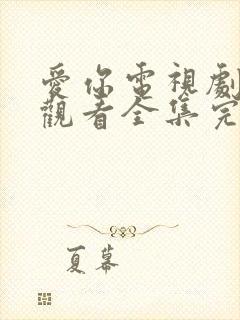 愛你電視劇
觀看全集完
夏蟇